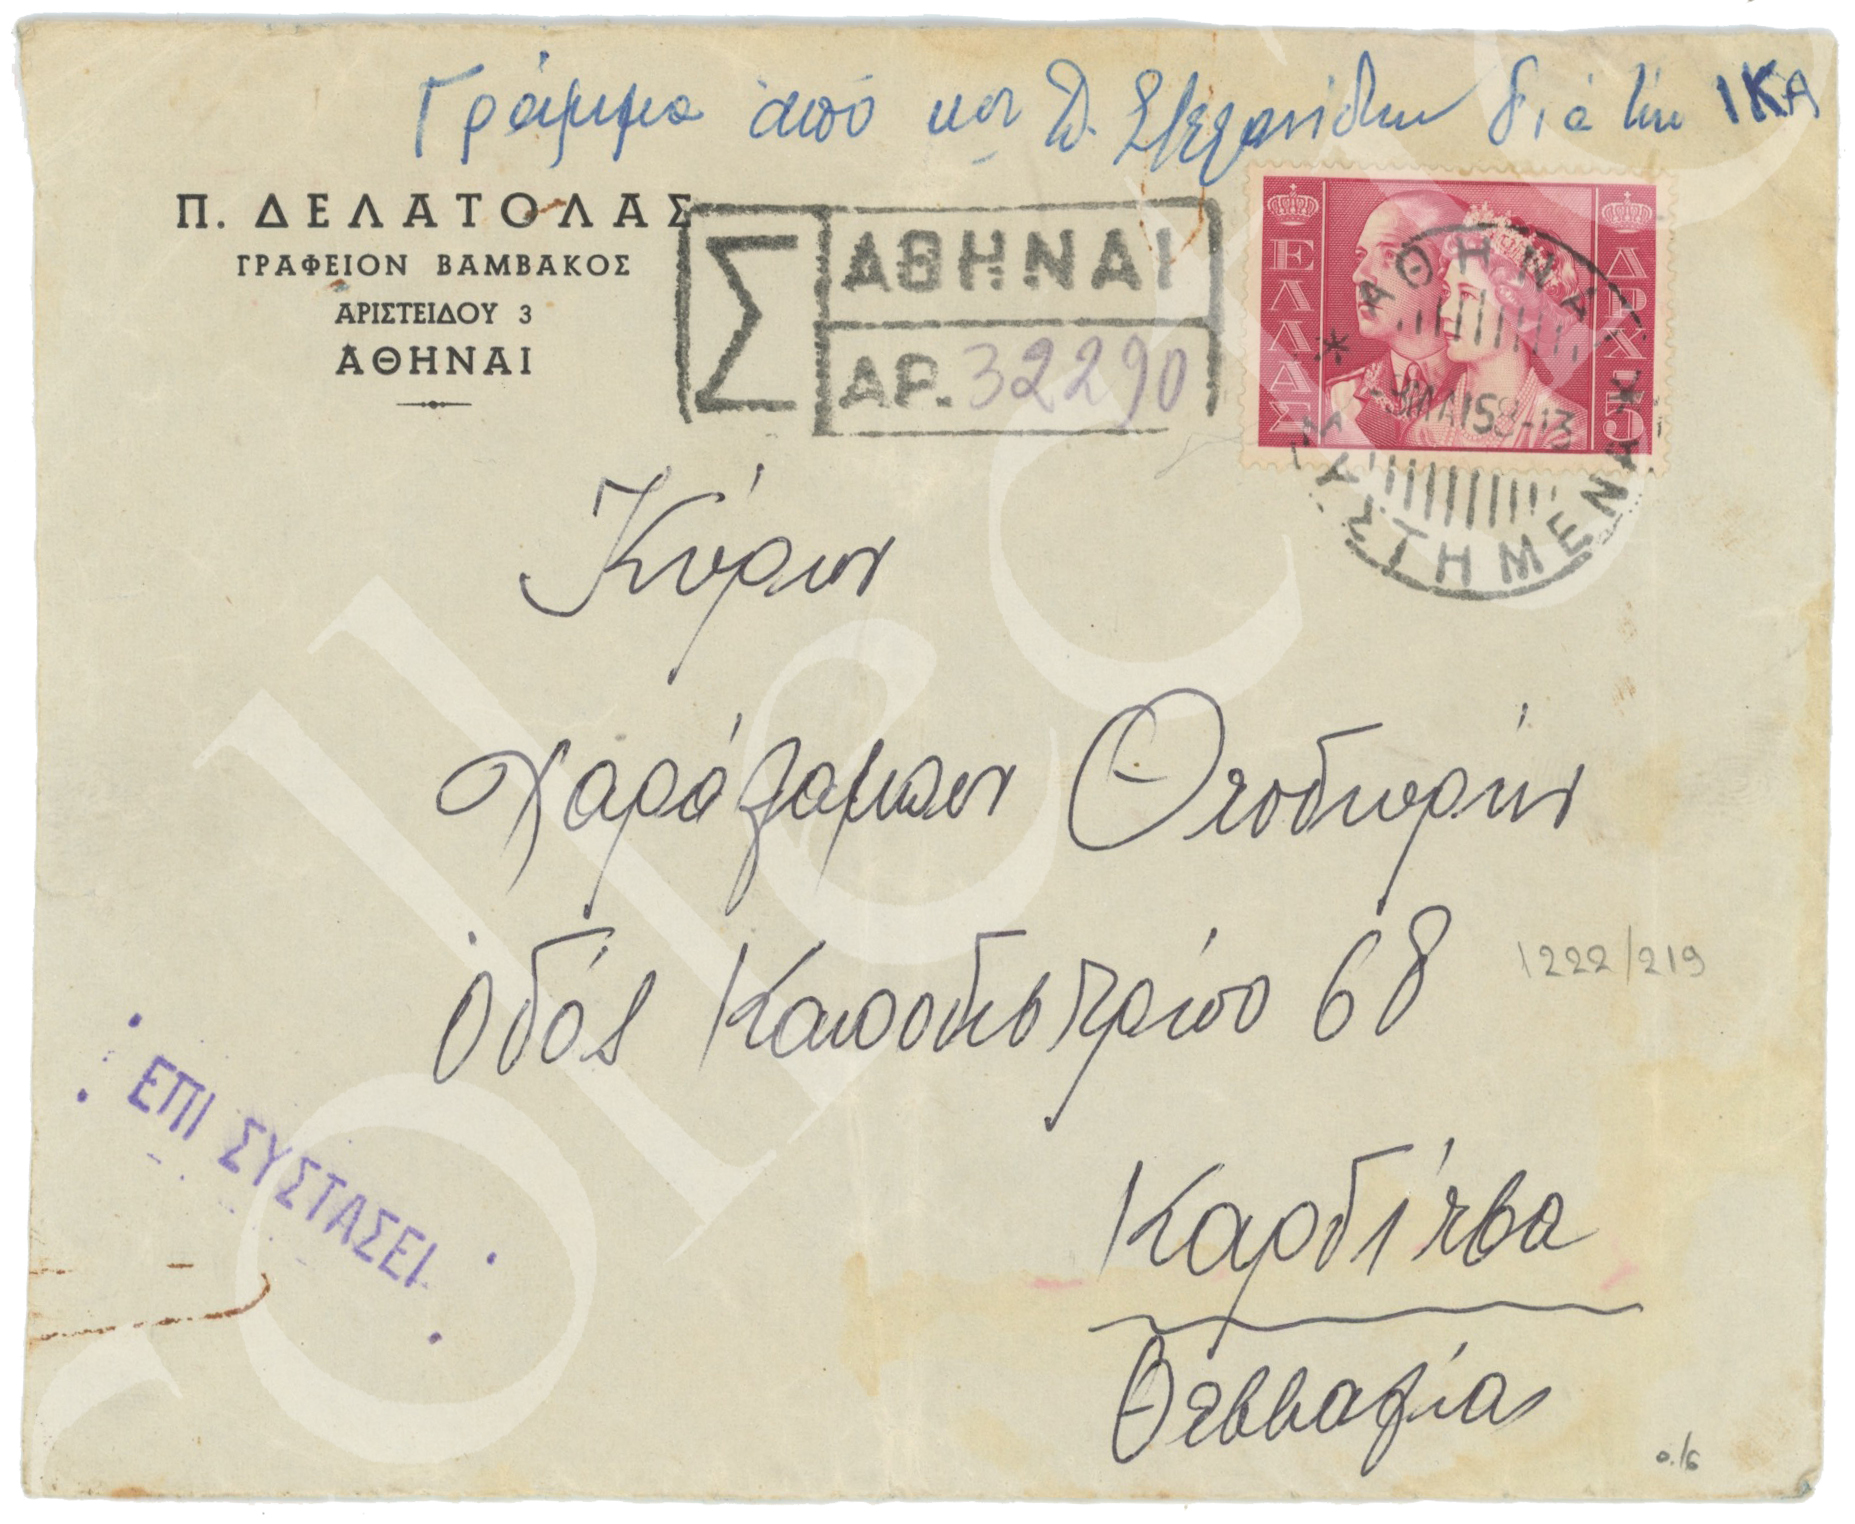 Γράμμα από κον Π. Στεφανίδην διά την ΙΚΑ
Π. ΔΕΛΑΤΟΛΑΣ
ΓΡΑΦΕΙΟΝ ΒΑΜΒΑΚΟΣ
ΑΡΙΣΤΕΙΔΟΥ 3
ΑΘΗΝΑΙ
Σ ΑΘΗΝΑΙ
ΑΡ. 32290
ΕΛΛΑΣ
ΔΡΧ 5
ΑΘΗΝΑΙ
ΣΥΣΤΗΜΕΝΑ
Κύριον
Χαράλαμπον Θεοδωρήν
οδός Καποδιστρίου 68
1222/219
Καρδίτσα
Θεσσαλίας
ΕΠΙ ΣΥΣΤΑΣΕΙ